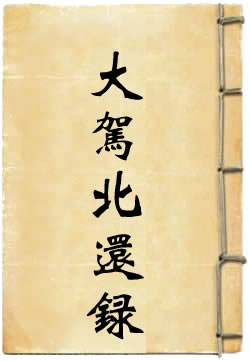 大駕北還録